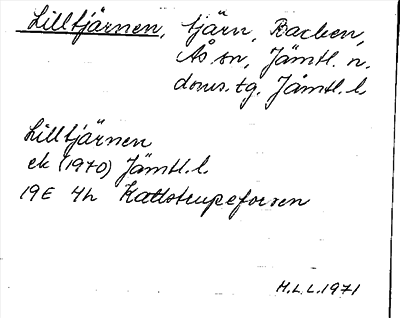 Lilltjärnen, tjärn, Backen,
Ås sn, Jämtl. n.
doms.tg. Jämtl. l.
Lilltjärnen
ek (1970) Jämtl. l.
19E 4h Kattstrupeforsen
H.L.L. 1971